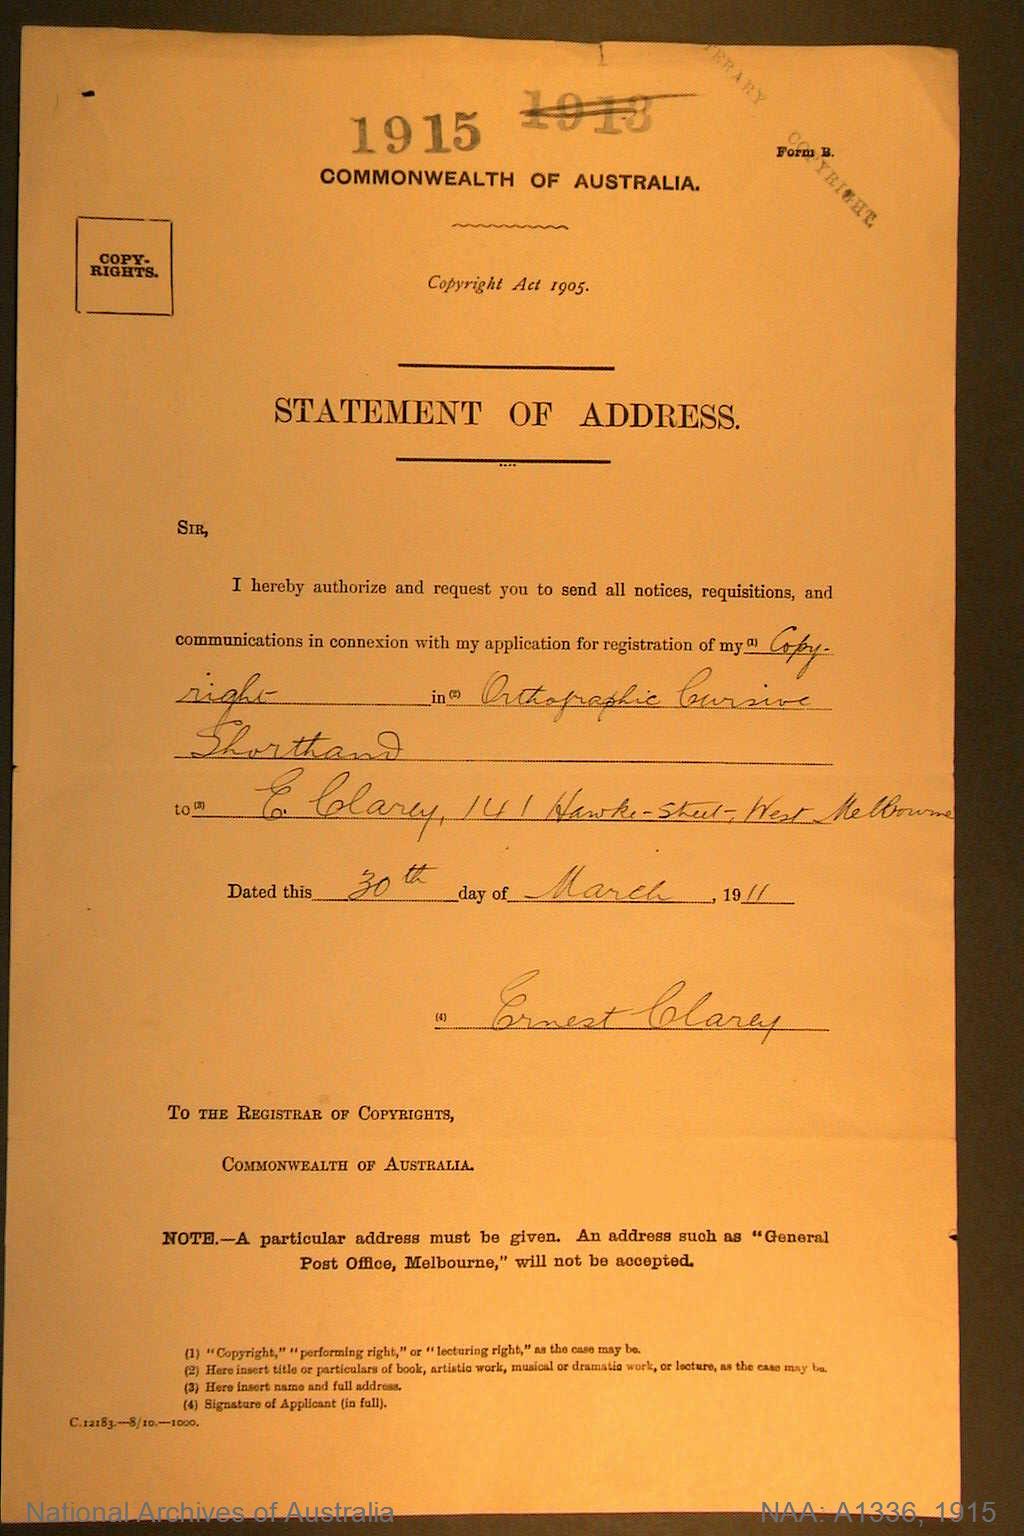 1915 1913
LITERARY
COPYRIGHT.
Form B.
COMMONWEALTH OF AUSTRALIA.
COPY-
RIGHTS.
Copyright Act 1905.
STATEMENT OF ADDRESS.
SIR,
I hereby authorize and request you to send all notices, requisitions, and
communications in connexion with my application for registration of my (1) Copy-
right in (2) Orthographic Cursive
Shorthand
to (3) E. Clarey, 141 Hawke-Street, West Melbourne
Dated this 30th day of March, 1911
(4) Ernest Clarey
TO THE REGISTRAR OF COPYRIGHTS,
COMMONWEALTH OF AUSTRALIA.
NOTE.—A particular address must be given. An address such as "General
Post Office, Melbourne," will not be accepted.
(1) "Copyright," "performing right," or "lecturing right," as the case may be.
(2) Here insert title or particulars of book, artistic work, musical or dramatic work, or lecture, as the case may be.
(3) Here insert name and full address.
(4) Signature of Applicant (in full).
C.12183.—8/10.—1000.
National Archives of Australia NAA: A1336, 1915